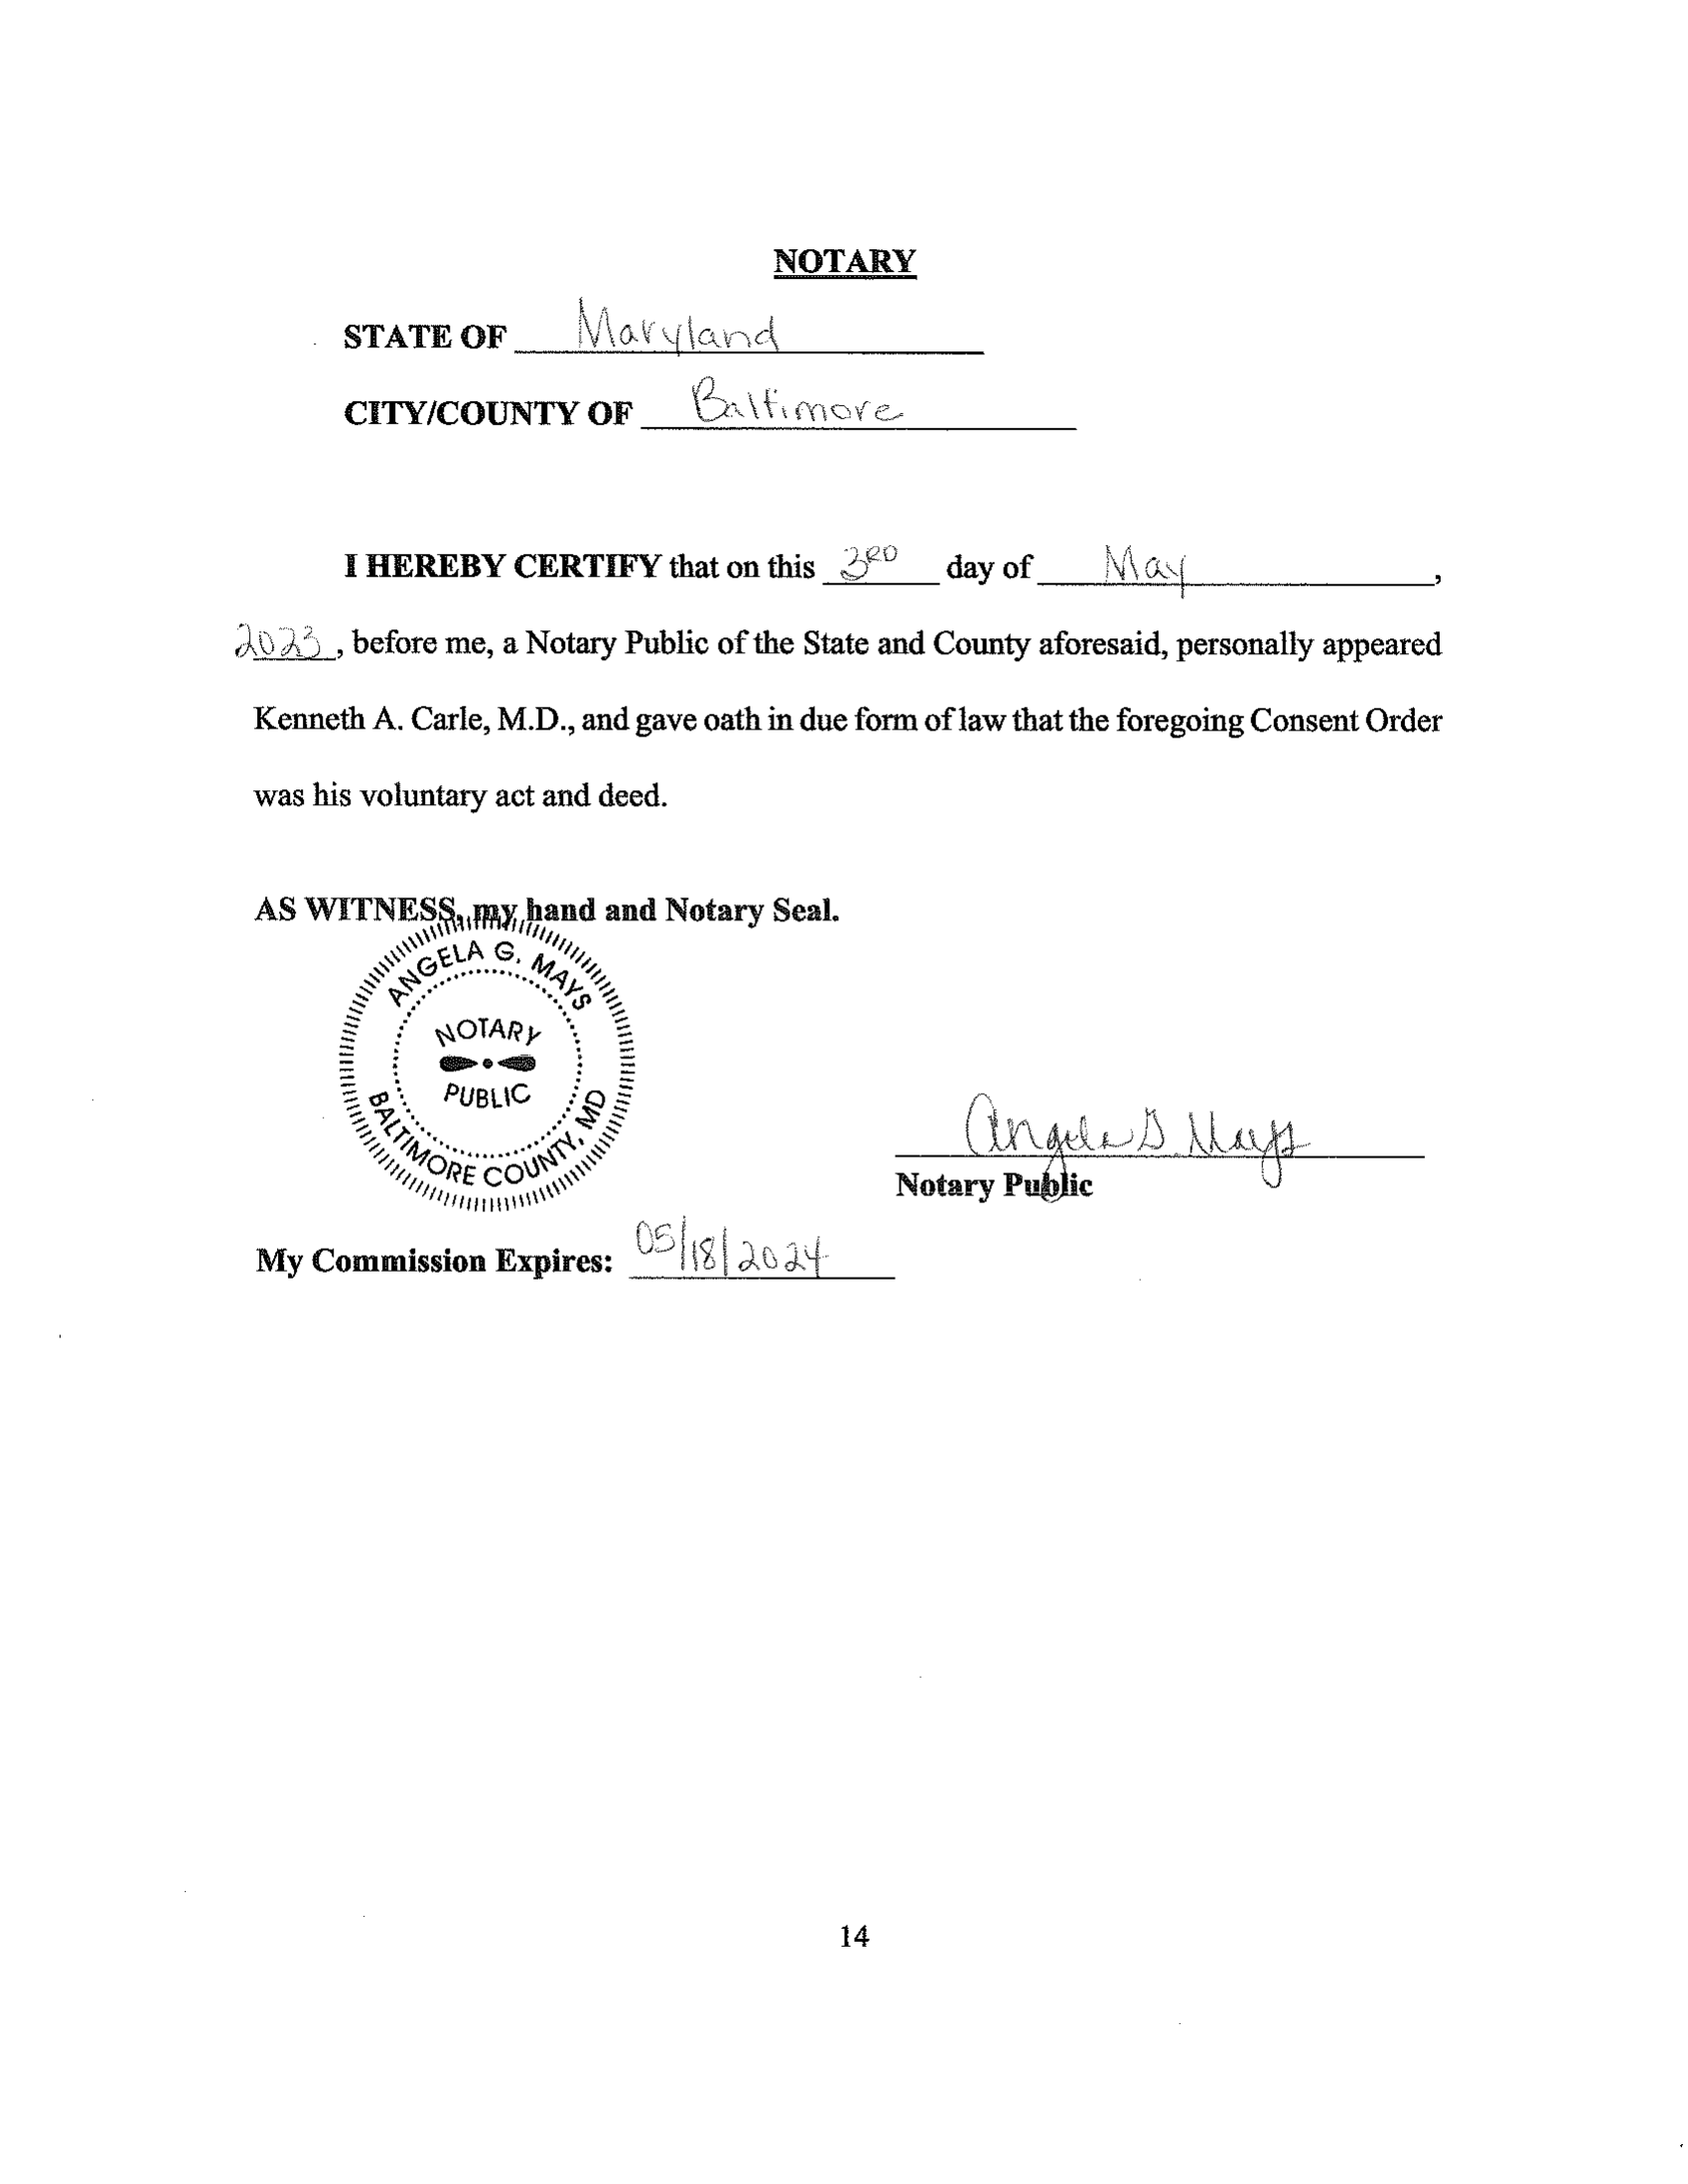 NOTARY
STATE OF Maryland
CITY/COUNTY OF Baltimore
I HEREBY CERTIFY that on this 3RD day of May,
2023, before me, a Notary Public of the State and County aforesaid, personally appeared
Kenneth A. Carle, M.D., and gave oath in due form of law that the foregoing Consent Order
was his voluntary act and deed.
AS WITNESS, my hand and Notary Seal.
ANGELA G. MAYS
NOTARY
PUBLIC
BALTIMORE COUNTY, MD
Angela G. Mays
Notary Public
My Commission Expires: 05/18/2024
14